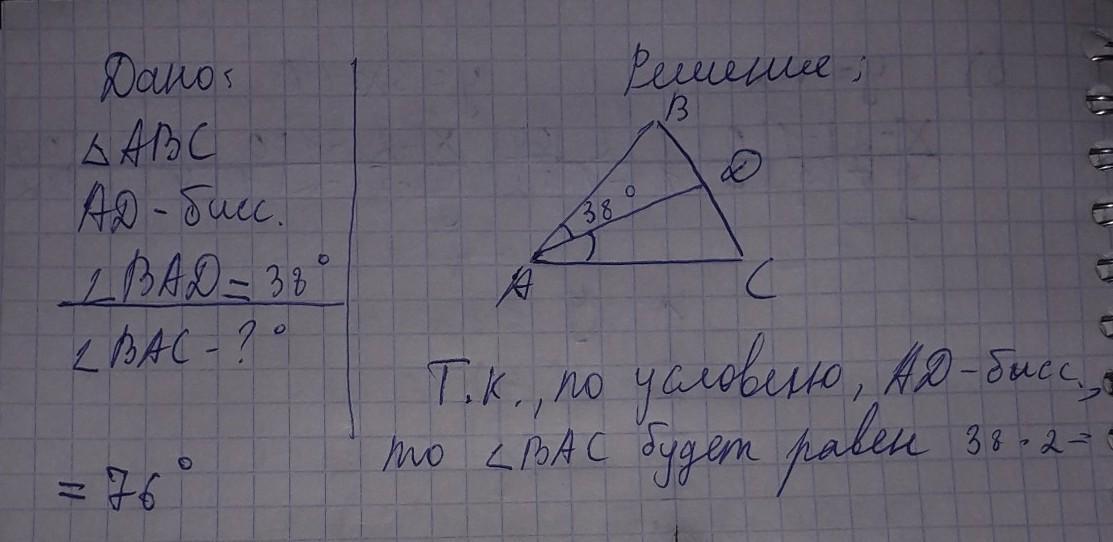 Дано:
△ABC
AD - бисс.
∠BAD = 38°
∠BAC - ? °
Решение:
B
D
38°
A
C
Т.к., по условию, AD - бисс.,
то ∠BAC будет равен 38 · 2 =
= 76°